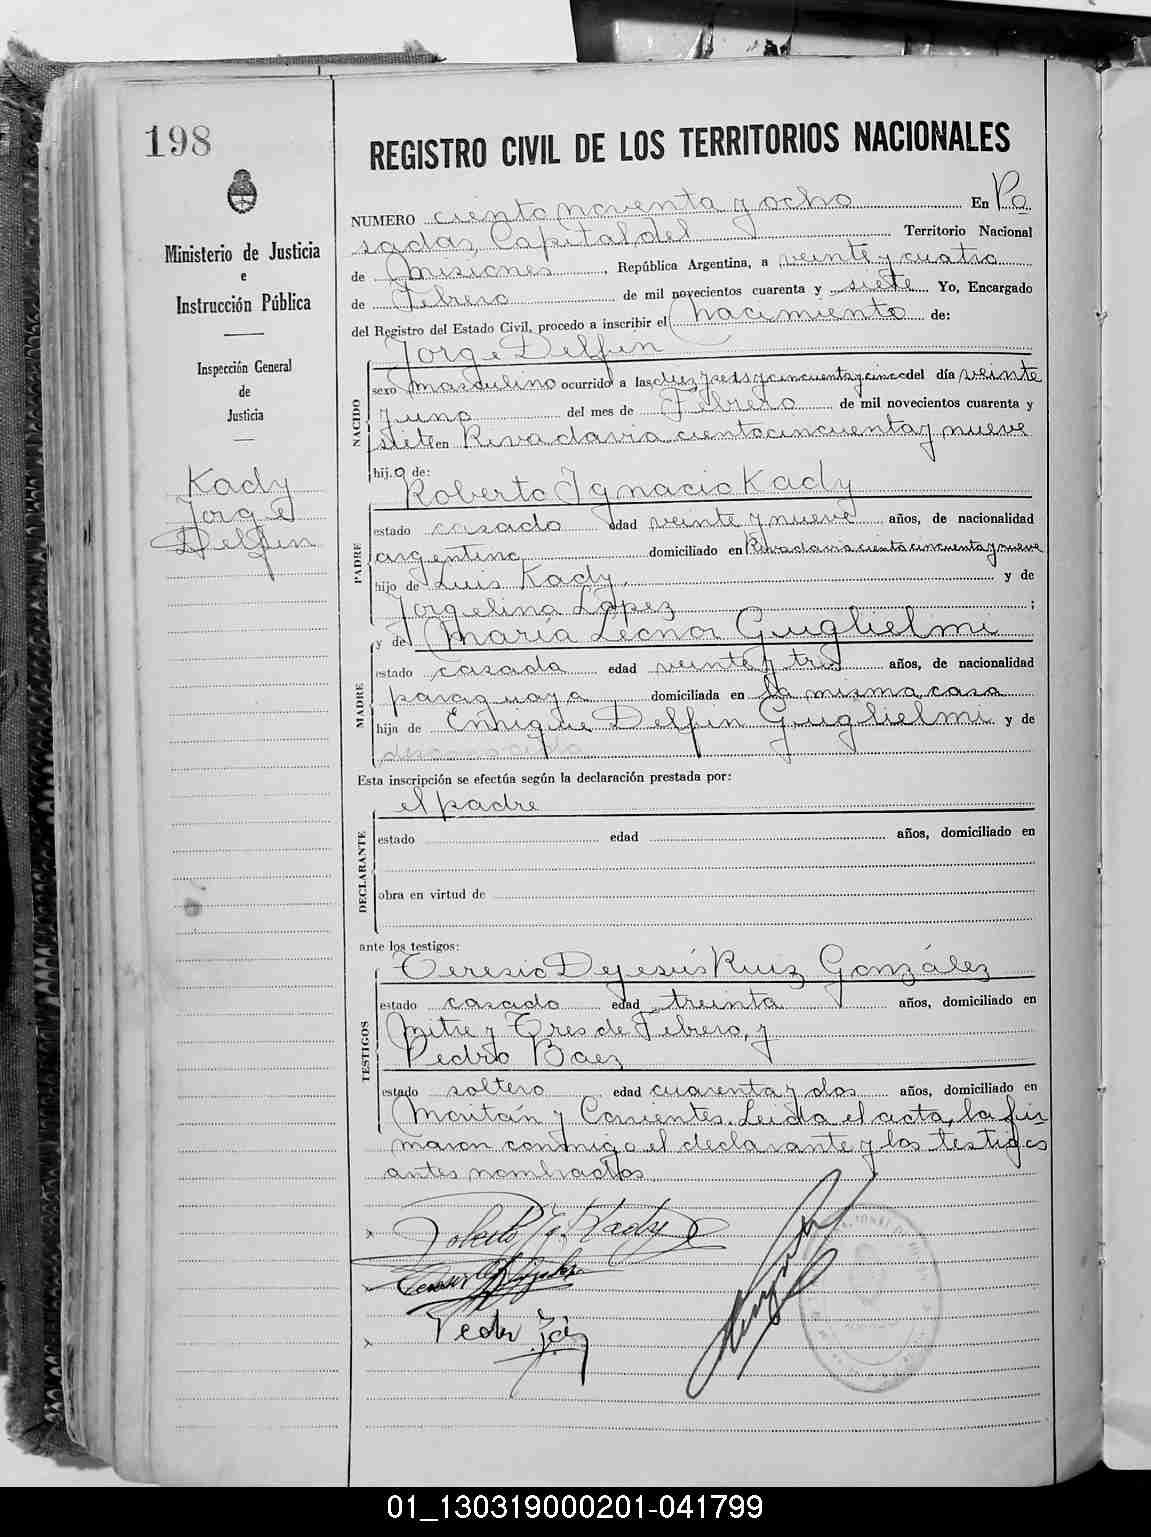 198
Ministerio de Justicia
e
Instrucción Pública
Inspección General
de
Justicia
Kady
Jorge
Delfin
REGISTRO CIVIL DE LOS TERRITORIOS NACIONALES
NUMERO ciento noventa y ocho En Po
sadas, Capital del Territorio Nacional
de Misiones, República Argentina, a veinte y cuatro
de Febrero de mil novecientos cuarenta y siete Yo, Encargado
del Registro del Estado Civil, procedo a inscribir el nacimiento de:
Jorge Delfin
NACIDO
sexo masculino ocurrido a las diez y seis y cincuenta y cinco del día veinte
y uno del mes de Febrero de mil novecientos cuarenta y
siete en Rivadavia ciento cincuenta y nueve
hijo de:
Roberto Ignacio Kady
PADRE
estado casado edad veinte y nueve años, de nacionalidad
argentina domiciliado en Rivadavia ciento cincuenta y nueve
hijo de Luis Kady, y de
Jorgelina López ;
y de María Leonor Guglielmi
MADRE
estado casada edad veinte y tres años, de nacionalidad
paraguaya domiciliada en la misma casa
hija de Enrique Delfin Guglielmi y de
Esta inscripción se efectúa según la declaración prestada por:
el padre
DECLARANTE
estado edad años, domiciliado en
obra en virtud de
ante los testigos:
Teresio Dejesús Ruiz González
TESTIGOS
estado casado edad treinta años, domiciliado en
Mitre y Tres de Febrero, y
Pedro Baez
estado soltero edad cuarenta y dos años, domiciliado en
y Corrientes. Leida el acta, la fir-
maron conmigo el declarante y los testigos
antes nombrados.
Roberto Ig. Kady
Pedro
01_130319000201-041799